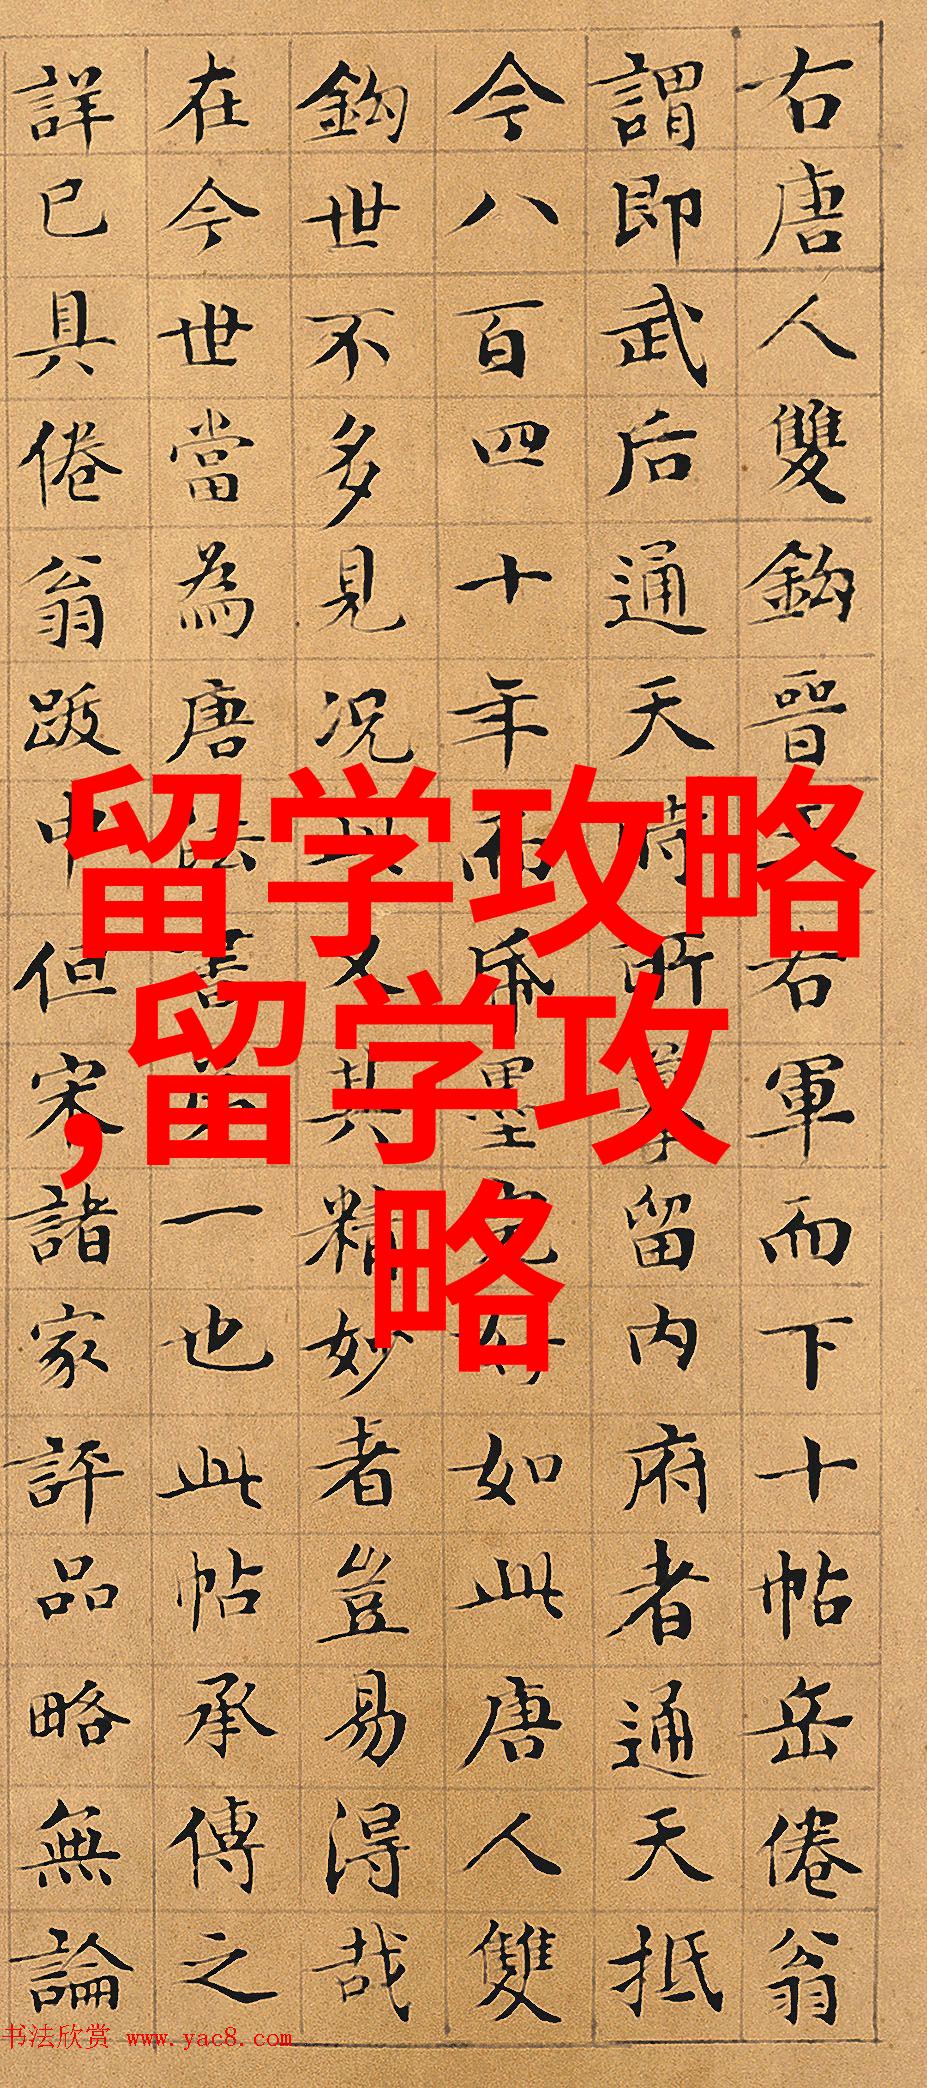 右唐人雙鈎晉王右軍而下十帖岳倦翁
謂即武后通天時所摹留内府者通天抵
今八百四十年而帋墨完好如此唐人雙
鈎世不多見况此又其精妙者豈易得哉
在今世當為唐法書第一也此帖承傳之
詳已具倦翁跋中但宋諸家評品略無論
留学攻略
,留学攻
略
书法欣赏 www.yac8.com